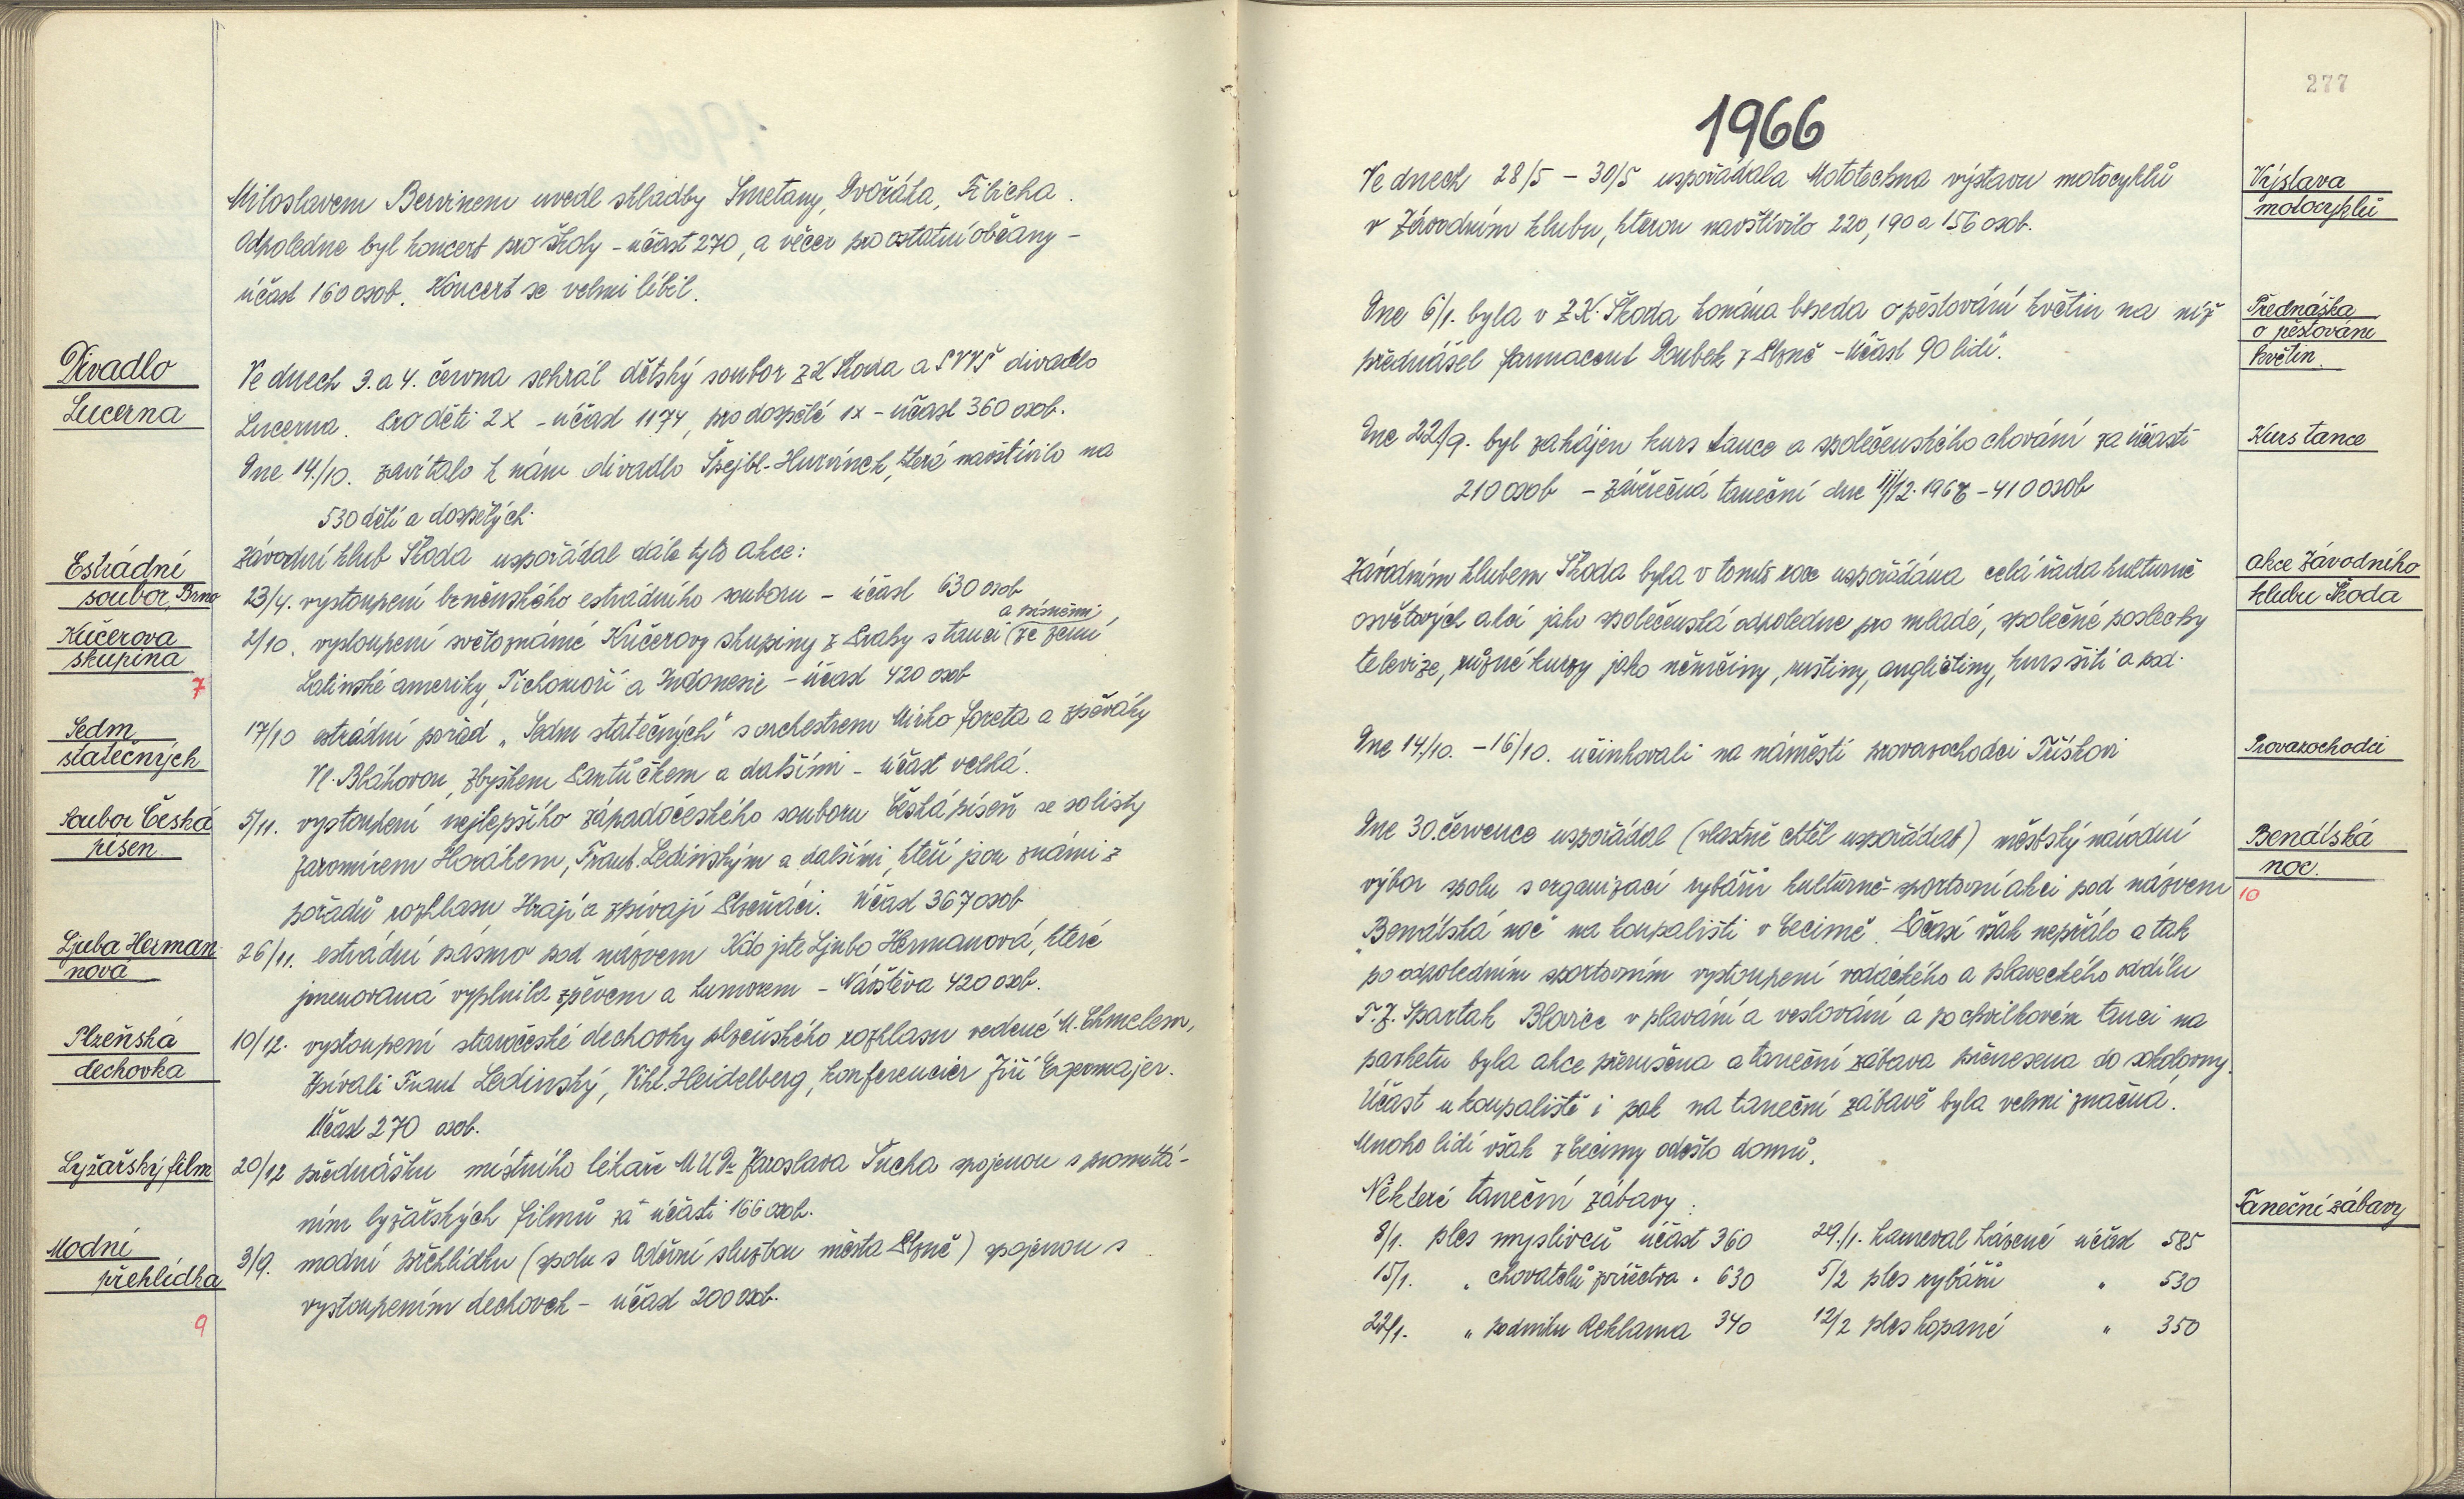 Miloslavem Bervinem uvedl skladby Smetany, Dvořáka, Fibicha.
Odpoledne byl koncert pro školy - účast 270, a večer pro ostatní občany -
účast 160 osob. Koncert se velmi líbil.
Divadlo
Lucerna
Ve dnech 3. a 4. června sehrál dětský soubor ZK Škoda a SVVŠ divadlo
Lucerna. Pro děti 2x - účast 1174, pro dospělé 1x - účast 360 osob.
Dne 14./10. zavítalo k nám divadlo Špejbl-Hurvínek, které navštívilo na
530 dětí a dospělých.
Závodní klub Škoda uspořádal dále tyto akce:
Estrádní
soubor Brno
23/4. vystoupení brněnského estrádního souboru - účast 630 osob
Kučerova
skupina
7
a písněmi
2/10. vystoupení světoznámé Kučerovy skupiny z Prahy s tanci (ze zemí
Latinské ameriky, Tichomoří a Indonesie - účast 420 osob
Sedm
statečných
17/10 estrádní pořad „Sedm statečných" s orchestrem Mirko Foreta a zpěváky
Vl. Bláhovou, Zbyškem Pantůčkem a dalšími - účast velká.
Soubor Česká
píseň
5/11. vystoupení nejlepšího západočeského souboru Česká píseň se solisty
Jaromírem Horákem, Frant. Ledinským a dalšími, kteří jsou známi z
pořadů rozhlasu Hrají a zpívají Plzeňáci. Účast 367 osob
Ljuba Herman-
nová
26/11. estrádní pásmo pod názvem Kdo jste Ljubo Hermanová, které
jmenovaná vyplnila zpěvem a humorem - Návštěva 420 osob.
Plzeňská
dechovka
10/12. vystoupení staročeské dechovky plzeňského rozhlasu vedené M. Chmelem,
Zpívali Frant Ledinský, Vikt. Heidelberg, konferenciér Jiří
Účast 270 osob.
Lyžařský film
20/12 přednášku místního lékaře MUDr Jaroslava Tucha spojenou s promítá-
ním lyžařských filmů za účasti 166 osob.
Modní
přehlídka
9
3/9. modní přehlídku (spolu s Oděvní službou města Plzně) spojenou s
vystoupením dechovek - účast 200 osob.
277
1966
Výstava
motocyklů
Ve dnech 28/5 - 30/5 uspořádala Mototechna výstavu motocyklů
v Závodním klubu, kterou navštívilo 220, 190 a 156 osob.
Přednáška
o pěstování
květin.
Dne 6/1. byla v Z.K. Škoda konána beseda o pěstování květin na níž
přednášel farmaceut Doubek z Plzně - Účast 90 lidí.
Kurs tance
Dne 22/9. byl zahájen kurs tance a společenského chování za účasti
210 osob - závěrečná taneční dne 11/12. 1966 - 410 osob
akce Závodního
klubu Škoda
Závodním klubem Škoda byla v tomto roce uspořádána celá řada kulturně
osvětových akcí jako společenská odpoledne pro mladé, společné poslechy
televize, různé kurzy jako němčiny, ruštiny, angličtiny, kurs šití a pod.
Provazochodci
Dne 14./10. - 16/10. účinkovali na náměstí provazochodci Tříškovi
Benátská
noc.
10
Dne 30. července uspořádal (vlastně chtěl uspořádat) městský národní
výbor spolu s organizací rybářů kulturně-sportovní akci pod názvem
„Benátská noc" na koupališti v Cecimě. Počasí však nepřálo a tak
po odpoledním sportovním vystoupení vodáckého a plaveckého oddílu
T.J. Spartak Blovice v plavání a veslování a po chvilkovém tanci na
parketu byla akce přerušena a taneční zábava přenesena do sokolovny.
Účast u koupaliště i pak na taneční zábavě byla velmi značná.
Mnoho lidí však z Cecimy odešlo domů.
Taneční zábavy
Některé taneční zábavy:
8/1. ples myslivců účast 360 29./1. karneval házené účast 585
15/1. „ chovatelů zvířectva „ 630 5/2 ples rybářů „ 530
22/1. „ podniku Reklama 340 12/2 ples kopané „ 350